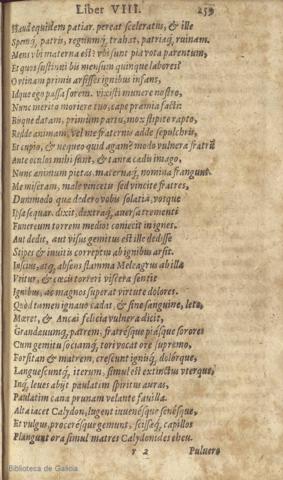 Liber VIII. 259
Haud equidem patiar. pereat sceleratus, & ille
Spemq́, patris, regnumq́, trahat, patriæq́, ruinam.
Mens vbi materna est? vbi sunt pia vota parentum,
Et quos sustinui bis mensum quinque labores?
O vtinam primis arsisses ignibus infans,
Idque ego passa forem. vixisti munere nostro,
Nunc merito moriere tuo, cape præmia facti:
Bisque datam, primùm partu, mox stipite rapto,
Redde animam, vel me fraternis adde sepulchris,
Et cupio, & nequeo quid agam? modo vulnera fratrũ
Ante oculos mihi sunt, & tantæ cædis imago,
Nunc animum pietas. maternaq́, nomina frangunt.
Me miseram, male vincetis sed vincite fratres,
Dummodo quæ dedero vobis solatia, vosque
Ipsa sequar. dixit, dextraq́, auersa trementi
Funereum torrem medios coniecit in ignes.
Aut dedit, aut visus gemitus est ille dedisse
Stipes & inuitis correptus ab ignibus arsit.
Inscius, atq, absens flamma Meleagrus ab illa
Vritur, & cæcis torreri viscera sentit
Ignibus, ac magnos superat virtute dolores.
Quòd tamen ignauo cadat, & sine sanguine, leto,
Mœret, & Ancæi felicia vulnera dicit,
Grandæuumq́, patrem, fratresque piasque sorores
Cum gemitu sociamq́, tori vocat ore supremo,
Forsitan & matrem, crescunt ignisq́, dolorque,
Languescuntq́, iterum, simul est extinctus vterque,
Inq́, leues abijt paulatim spiritus auras,
Paulatim cana prunam velante fauilla.
Alta iacet Calydon, lugent iuuenésque senésque,
Et vulgus, procerésque gemunt, scissæq́, capillos
Plangunt ora simul matres Calydonides eheu.
r 2 Puluere
Biblioteca de Galicia